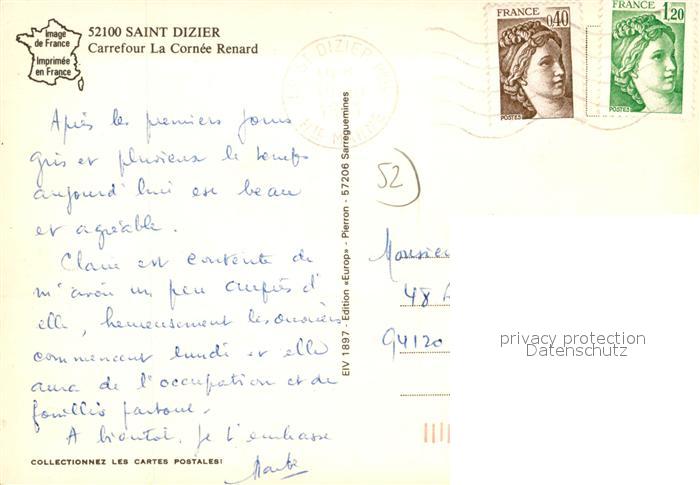 Image
de France
Imprimée
en France
52100 SAINT DIZIER
Carrefour La Cornée Renard
FRANCE
0,40
POSTES
FRANCE
1,20
POSTES
ST DIZIER
HTE MARNE
Après les premiers jours
gris et pluvieux le temps
aujourd'hui est beau
et agréable.
Claire est contente de
m'avoir un peu auprès d'
elle, heureusement les ouvriers
commencent lundi et elle
aura de l'occupation et du
fouillis partout.
A bientôt. Je t'embrasse
COLLECTIONNEZ LES CARTES POSTALES!
EIV 1897 - Edition «Europ» - Pierron - 57206 Sarreguemines
52
Monsieur
48
94120
privacy protection
Datenschutz